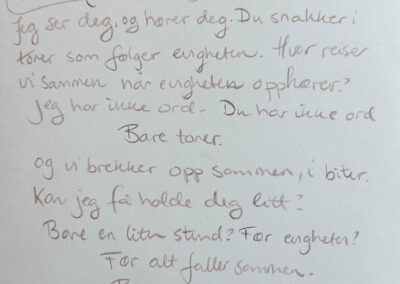 Jeg ser deg, og hører deg. Du snakker i
toner som følger evigheten. Hvor reiser
vi sammen når evigheten opphører?
Jeg har ikke ord. Du har ikke ord
Bare toner.
og vi brekker opp sammen, i biter.
Kan jeg få holde deg litt?
Bare en liten stund? Før evigheten?
Før alt faller sammen.